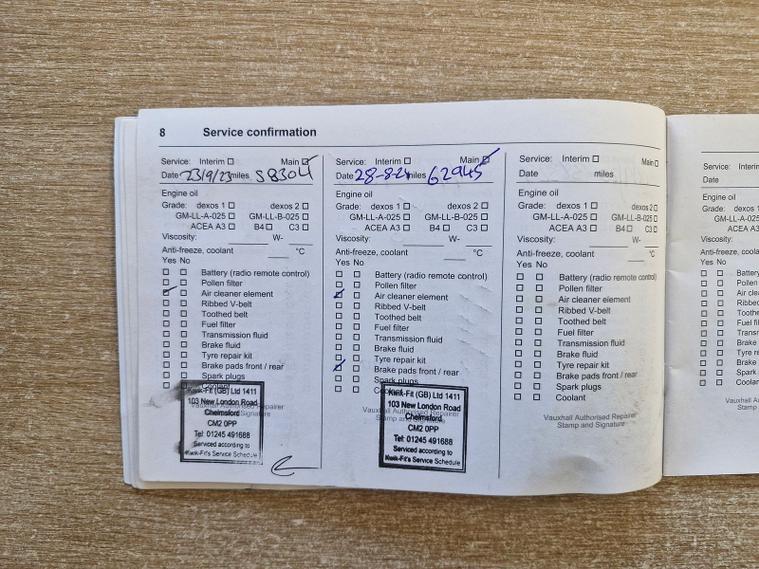 8 Service confirmation
Service: Interim Main
Date 23/9/23 miles 58304
Engine oil
Grade: dexos 1 dexos 2
GM-LL-A-025 GM-LL-B-025
ACEA A3 B4 C3
Viscosity: W-
Anti-freeze, coolant °C
Yes No
Battery (radio remote control)
Pollen filter
Air cleaner element
Ribbed V-belt
Toothed belt
Fuel filter
Transmission fluid
Brake fluid
Tyre repair kit
Brake pads front / rear
Spark plugs
Coolant
Kwik-Fit (GB) Ltd 1411
103 New London Road
Chelmsford
CM2 0PP
Tel: 01245 491688
Serviced according to
Kwik-Fit's Service Schedule
Service: Interim Main
Date 28-8-24 miles 62945
Engine oil
Grade: dexos 1 dexos 2
GM-LL-A-025 GM-LL-B-025
ACEA A3 B4 C3
Viscosity: W-
Anti-freeze, coolant °C
Yes No
Battery (radio remote control)
Pollen filter
Air cleaner element
Ribbed V-belt
Toothed belt
Fuel filter
Transmission fluid
Brake fluid
Tyre repair kit
Brake pads front / rear
Spark plugs
Vauxhall Authorised Repairer
Stamp and Signature
Kwik-Fit (GB) Ltd 1411
103 New London Road
Chelmsford
CM2 0PP
Tel: 01245 491688
Serviced according to
Kwik-Fit's Service Schedule
Service: Interim Main
Date miles
Engine oil
Grade: dexos 1 dexos 2
GM-LL-A-025 GM-LL-B-025
ACEA A3 B4 C3
Viscosity: W-
Anti-freeze, coolant °C
Yes No
Battery (radio remote control)
Pollen filter
Air cleaner element
Ribbed V-belt
Toothed belt
Fuel filter
Transmission fluid
Brake fluid
Tyre repair kit
Brake pads front / rear
Spark plugs
Coolant
Vauxhall Authorised Repairer
Stamp and Signature
Service: Interim
Date
Engine oil
Grade: dexos 1
GM-LL-A-025
ACEA A3
Viscosity:
Anti-freeze, coolant
Yes No
Pollen
Air clea
Ribbed
Toothe
Fuel fil
Transm
Brake f
Tyre re
Brake
Spark
Coolan
Vauxhall Au
Stamp